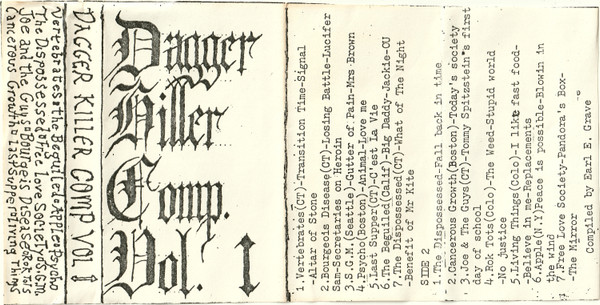 Vertebrates•The Beguiled•Apple•Psycho
The Dispossessed•Free Love Society•S.G.M.
Joe and the Guys•Bourgeois Disease•
Cancerous Growth•Last Supper•Living Things
DAGGER KILLER COMP VOL 1
Dagger
Killer
Comp.
Vol. 1
1.Vertebrates(CT)-Transition Time-Signal
-Altar of Stone
2.Bourgeois Disease(CT)-Losing Battle-Lucifer
Sam-Secretaries on Heroin
3.S.G.M.(Seattle)-Gutter of Pain-Mrs Brown
4.Psycho(Boston)-Animal-Love me
5.Last Supper(CT)-C'est La Vie
6.The Beguiled(Calif)-Big Daddy-Jackie-OU
7.The Dispossessed(CT)-What of The Night
-Benefit of Mr Kite
SIDE 2
1.The Dispossessed-Fall back in time
2.Cancerous Growth(Boston)-Today's society
3.Joe & The Guys(CT)-Tommy Spitzstein's first
day of school
4.Rob (Colo)-The Weed-Stupid world
-No justice
5.Living Things(Colo)-I like fast food-
-Believe in me-Replacements
6.Apple(N.Y)Peace is possible-Blowin in
the wind
7.Free Love Society-Pandora's Box-
-The Mirror
Compiled by Earl E. Grave